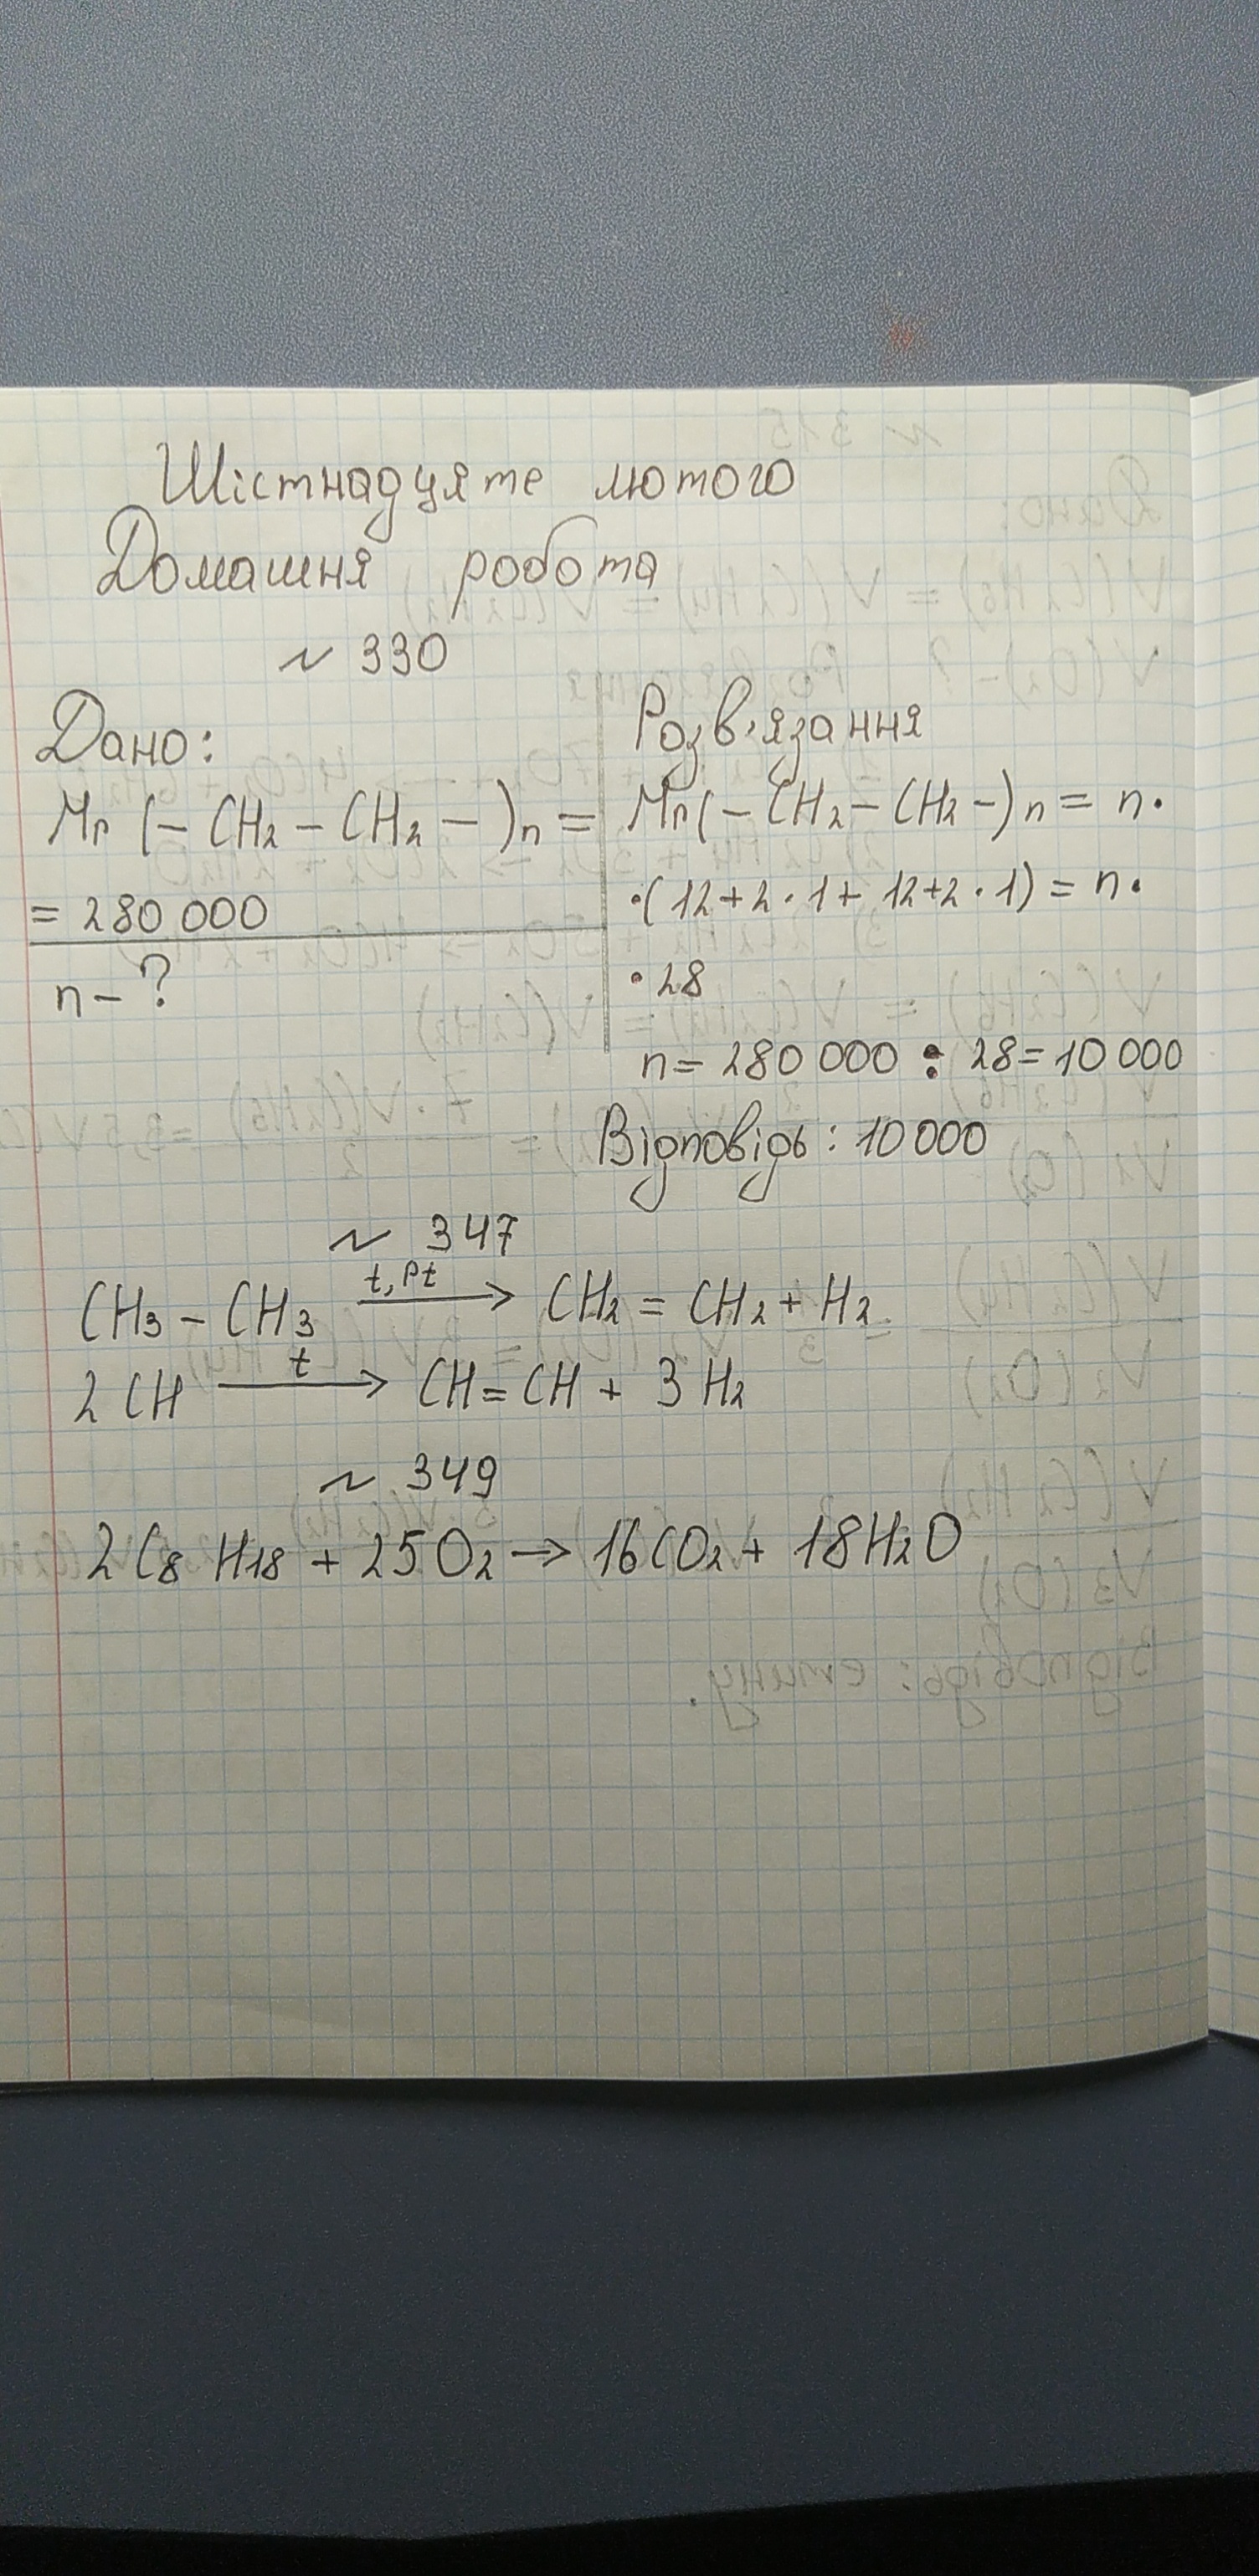 Шістнадцяте лютого
Домашня робота
№ 330
Дано:
Mr (– CH₂ – CH₂ –)n =
= 280 000
n – ?
Розв'язання
Mr (– CH₂ – CH₂ –)n = n·
·(12+2·1+12+2·1) = n·
·28
n = 280 000 : 28 = 10 000
Відповідь: 10 000
№ 347
t, Pt
CH₃ – CH₃ ⟶ CH₂ = CH₂ + H₂
t
2 CH ⟶ CH = CH + 3 H₂
№ 349
2 C₈ H₁₈ + 25 O₂ → 16 CO₂ + 18 H₂O